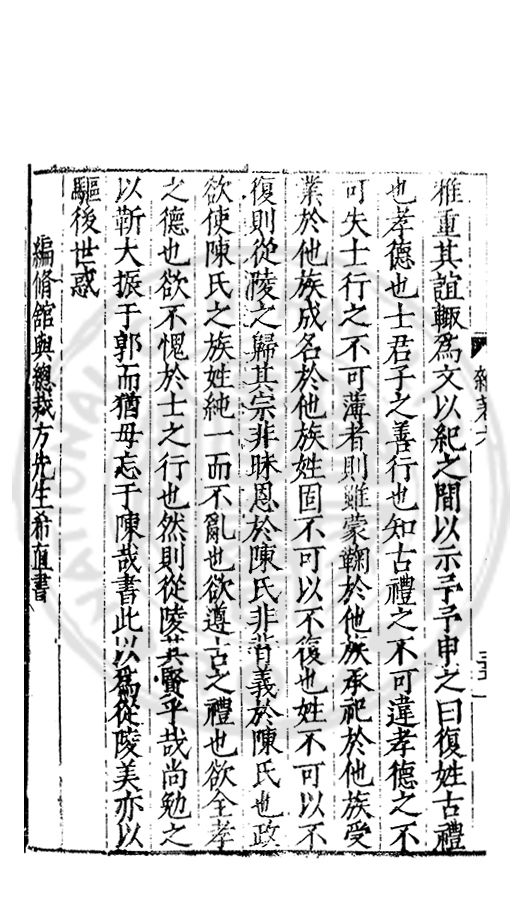 雅重其誼輙為文以紀之間以示予予申之曰復姓古禮
也孝德也士君子之善行也知古禮之不可違孝德之不
可失士行之不可薄者則雖蒙鞠於他族承祀於他族受
業於他族成名於他族姓固不可以不復也姓不可以不
復則從陵之歸其宗非昧恩於陳氏非背義於陳氏也政
欲使陳氏之族姓純一而不亂也欲遵古之禮也欲全孝
之德也欲不愧於士之行也然則從陵其賢乎哉尚勉之
以靳大振于郭而猶毋忘于陳哉書此以為從陵美亦以
驅後世惑
編脩舘與總裁方先生希直書